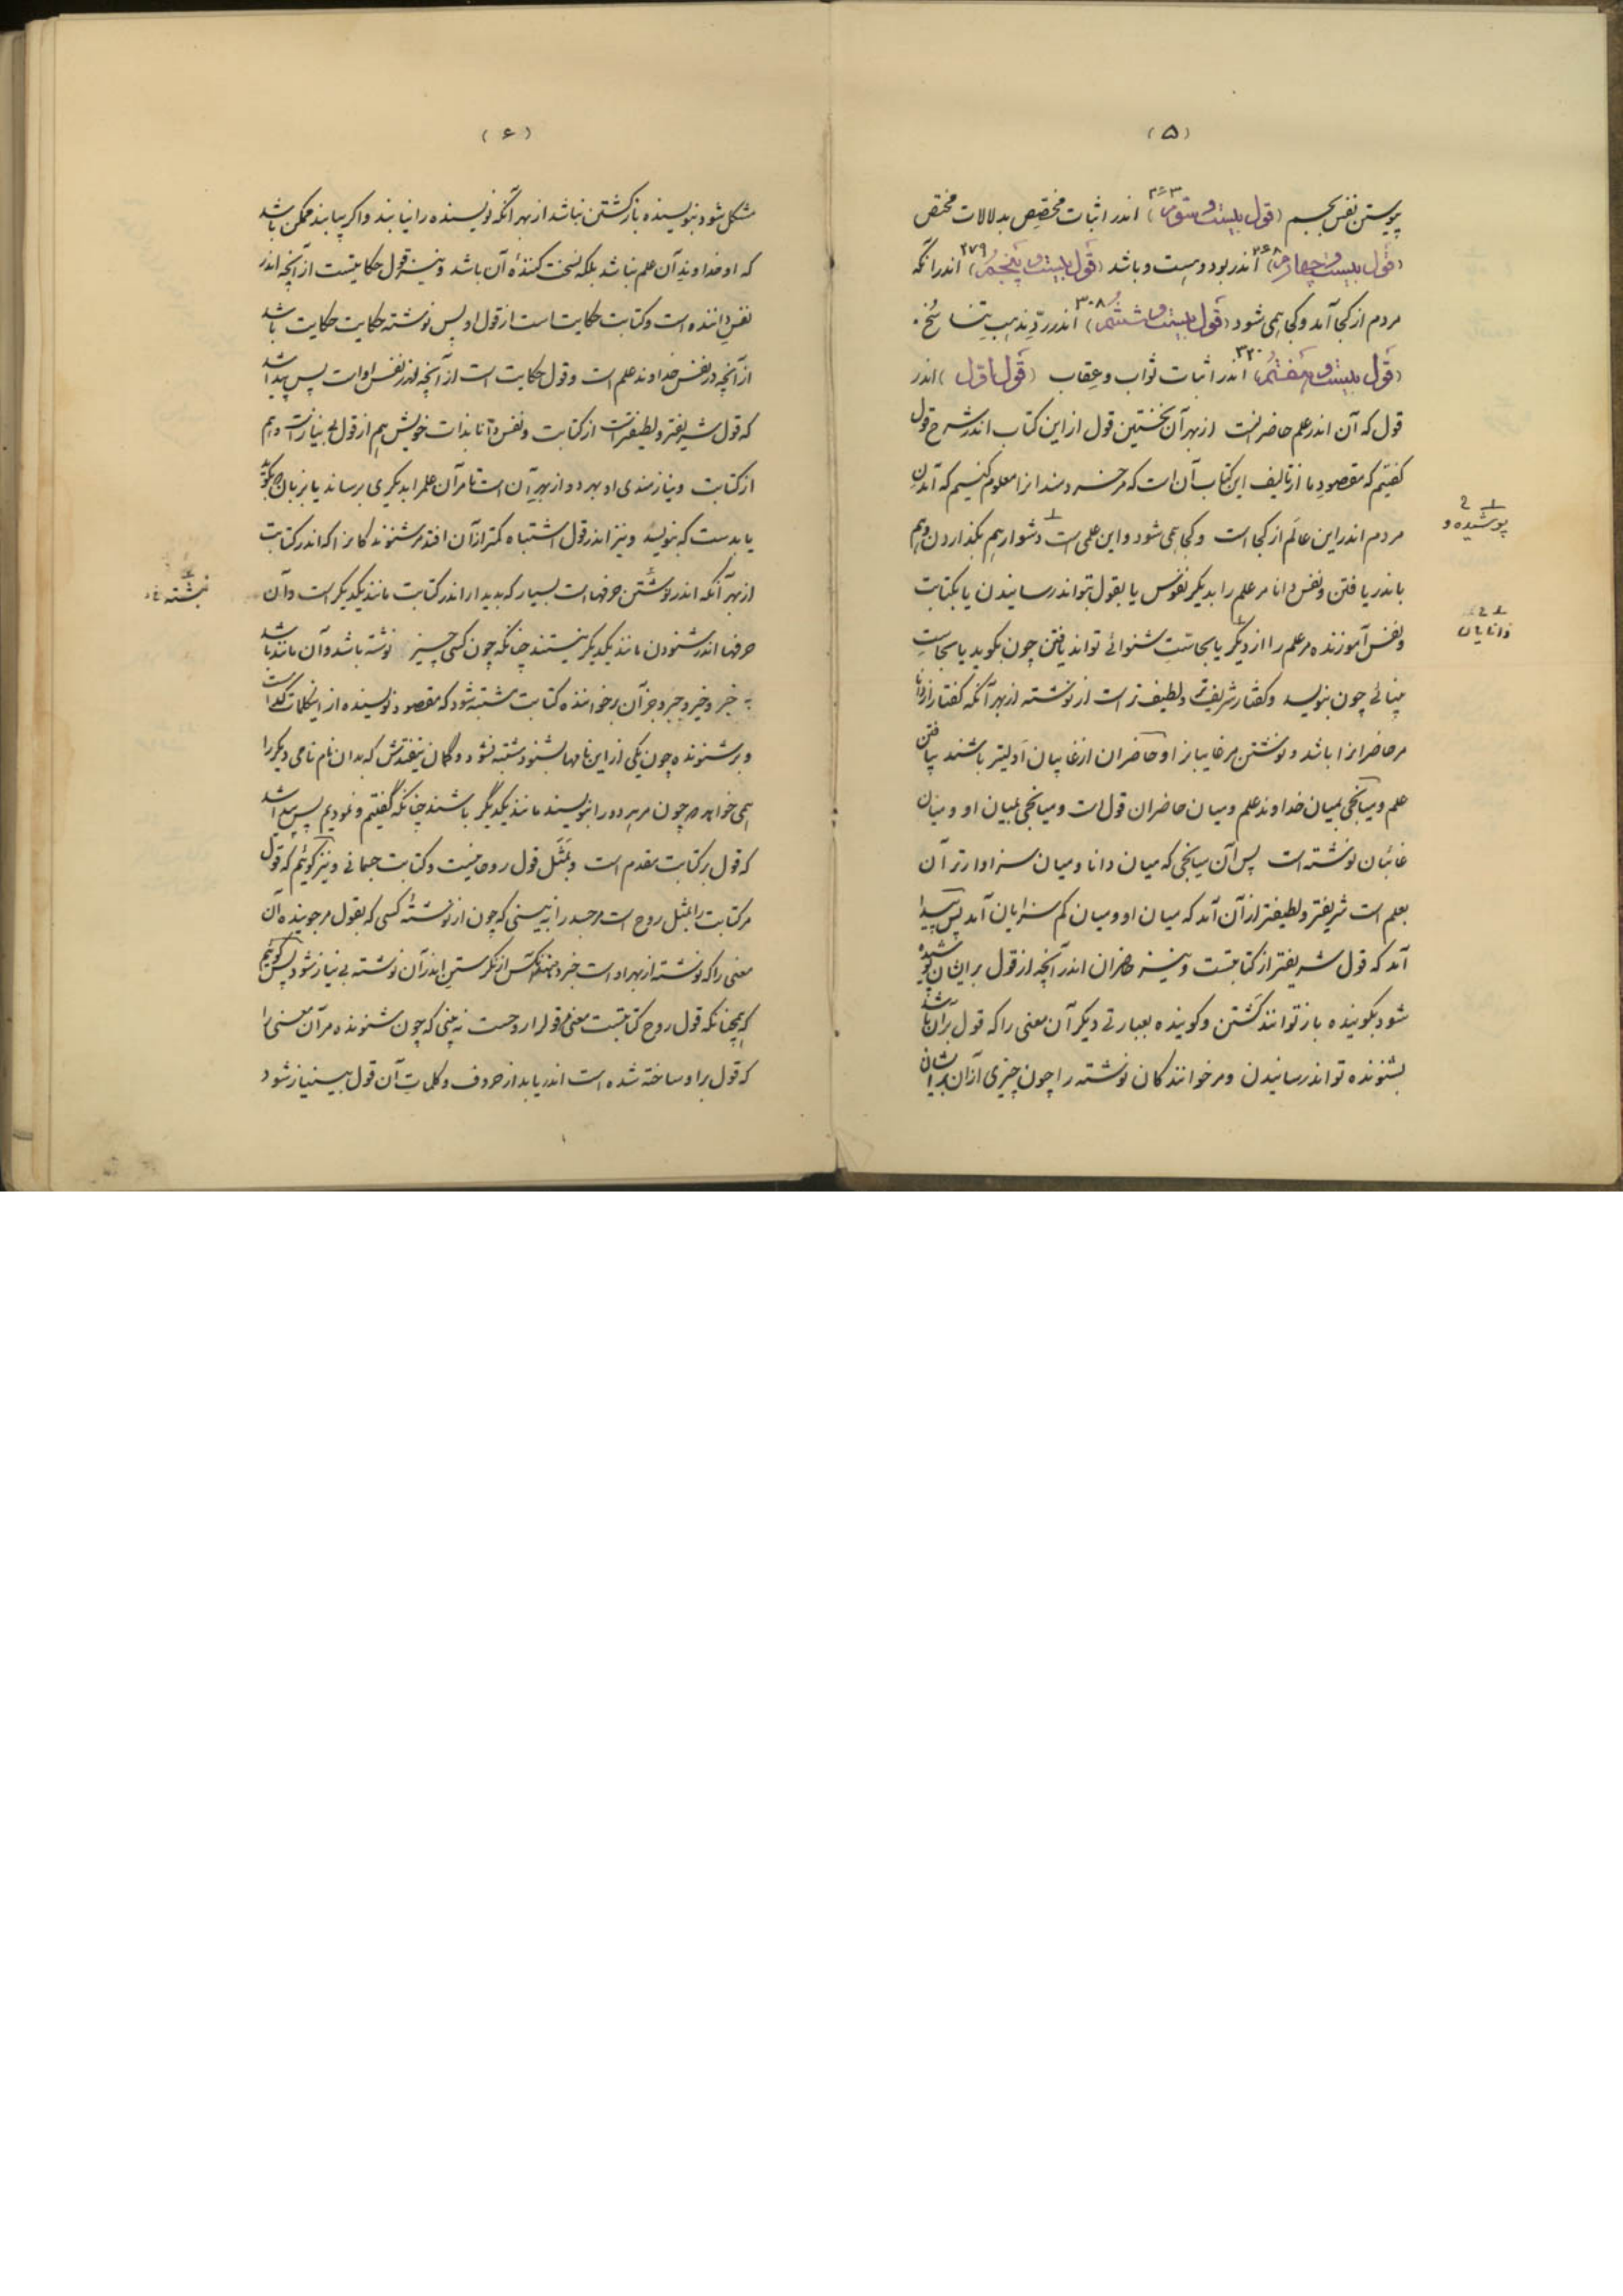 (۵)
پیوستن نفس بجسم (قول بیست و سوم) ۲۶۳ اندر اثبات مخصّص بدلالات مختص
(قول بیست و چهارم) ۲۶۸ اندر بود و هست و باشد (قول بیست و پنجم) ۲۷۹ اندر آنکه
مردم از کجا آمد و کجا همی شود (قول بیست و ششم) ۳۰۸ اندر ردّ مذهب تناسخ
(قول بیست و هفتم) ۳۲۰ اندر اثبات ثواب و عقاب (قول اول) اندر
قول که آن اندر علم حاضرانست از بهر آن نخستین قول از این کتاب اندر شرح قول
گفتیم که مقصود ما از تالیف این کتاب آن است که مر خردمندانرا معلوم کنیم که آمدن
مردم اندر این عالم از کجا است و کجا همی شود و این علمی است دشوار هم بگذاردن و هم
باندر یافتن و نفس دانا مر علم را بدیگر نفوس یا بقول تواند رسانیدن یا بکتابت
و نفس آموزنده مر علم را از دیگر یا بحاست شنوائی تواند یافتن چون بگوید یا بحاست
بینائی چون بنویسد و گفتار شریفتر و لطیف تر است از نوشته از بهر آنکه گفتار از دانا
مر حاضرانرا باشد و نوشتن مر غایبانرا و حاضران از غایبان اولیتر باشند بیافتن
علم و میانجی بمیان خداوند علم و میان حاضران قول است و میانجی بمیان او و میان
غائبان نوشته است پس آن میانجی که میان دانا و میان سزاوارتر آن
بعلم است شریفتر و لطیفتر از آن آمد که میان او و میان کم سزایان آمد پس پیدا
آمد که قول شریفتر از کتابتست و نیز حاضران اندر آنچه از قول بر ایشان پوشیده
شود بگوینده باز توانند گشتن و گوینده بعبارتی دیگر آن معنی را که قول بر آن باشد
بشنونده تواند رسانیدن و مر خوانندگان نوشته را چون چیزی از آن بر ایشان
پوشیده و
دانایان
(۶)
مشکل شود بنویسنده بازگشتن نباشد از بهر آنکه نویسنده را نیابند و اگر بیابند ممکن باشد
که او خداوند آن علم نباشد بلکه نسخت کننده آن باشد و نیز قول حکایتست از آنچه اندر
نفس داننده است و کتابت حکایت است از قول او پس نوشته حکایت حکایت باشد
از آنچه در نفس خداوند علم است و قول حکایت است از آنچه اندر نفس او است پس پیدا شد
که قول شریفتر و لطیفتر است از کتابت و نفس دانا بذات خویش هم از قول بی نیاز است و هم
از کتابت و نیازمندی او بهر دو از بهر آن است تا مر آن علم را بدیگری برساند یا بزبان که بگوید
یا بدست که بنویسد و نیز اندر قول اشتباه کمتر از آن افتد مر شنوندگانرا که اندر کتابت
از بهر آنکه اندر نوشتن حرفها است بسیار که بدیدار اندر کتابت مانند یکدیگر است و آن
حرفها اندر شنودن مانند یکدیگر نیستند چنانکه چون کسی چیز نوشته باشد و آن مانند باشد
به خبر و خیر و حبر و جز آن بر خواننده کتابت مشتبه شود که مقصود نویسنده از این کلمات کدام است
و بر شنونده چون یکی از این نامها بشنود مشتبه نشود و گمان نیفتدش که بدان نام نامی دیگر را
همی خواهد هر چون مر هر دو را بنویسند مانند یکدیگر باشند چنانکه گفتیم و نمودیم پس پیدا شد
که قول بر کتابت مقدم است و بمثل قول روحانیست و کتابت جسمانی و نیز گوئیم که قول
مر کتابت را بمثل روح است مر جسد را نه بینی که چون از نوشته کسی که بقول مر جوینده آن
معنی را که نوشته از بهر او است خبر دهد آنکس از نگرستن اندر آن نوشته بی نیاز شود پس گوئیم
که همچنانکه قول روح کتابتست معنی مر قول را روحست نه بینی که چون شنونده مر آن معنی را
که قول بر او ساخته شده است اندر یابد از حروف و کلمات آن قول بی نیاز شود
نبشته